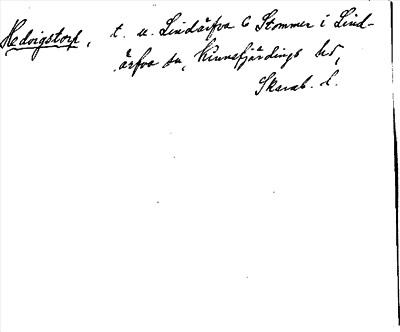 Hedvigstorp, t. u. Lindärfva 6 Stommer i Lind-
ärfva sn, Kinnefjärdings hd,
Skarab. l.